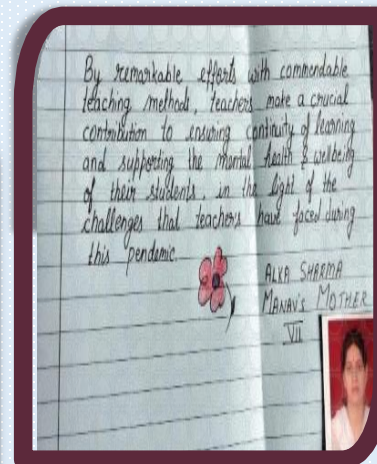 By remarkable efforts with commendable
teaching methods, teachers make a crucial
contribution to ensuring continuity of learning
and supporting the mental health & wellbeing
of their students, in the light of the
challenges that teachers have faced during
this pendemic.
ALKA SHARMA
MANAV'S MOTHER
VII